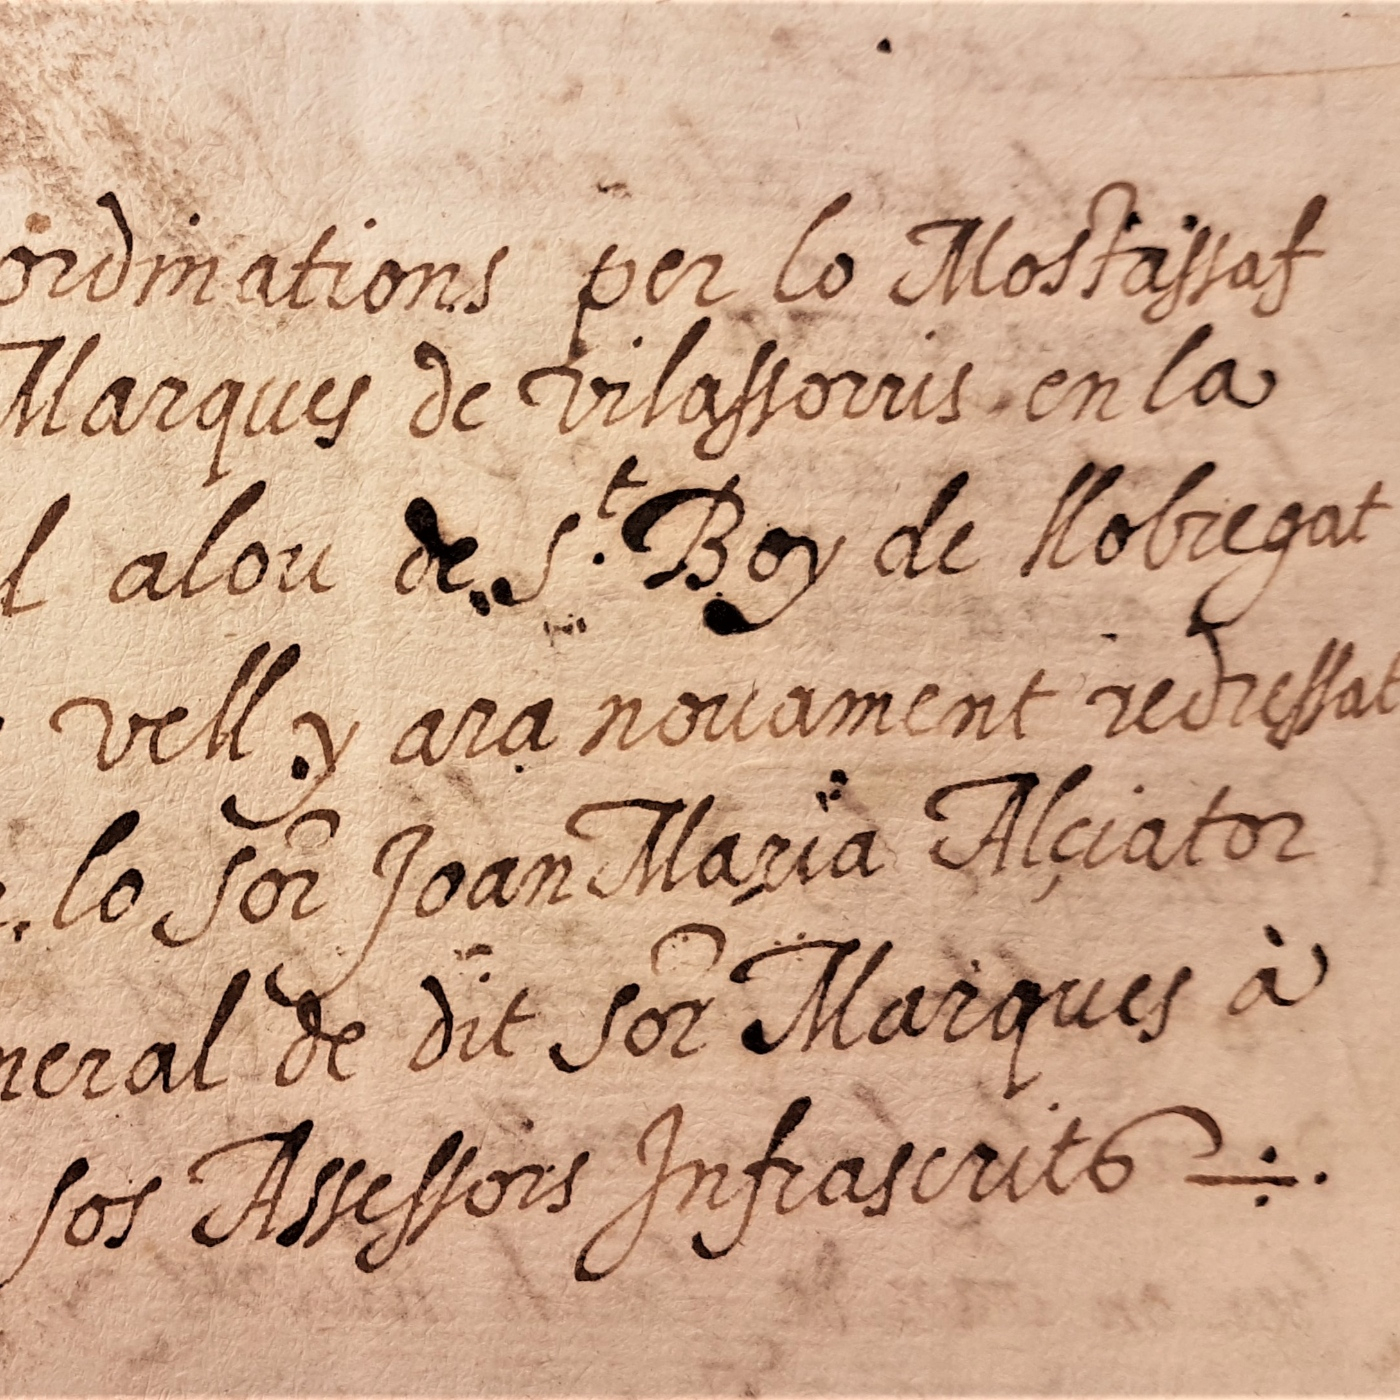 ordinations per lo Mostassaf
Marques de Vilassorris en la
l alou de St. Boy de llobregat
vell y ara nouament redressat
lo Sor Joan Maria Alçiator
neral de dit Sor Marques à
sos Assessors Infrascrits